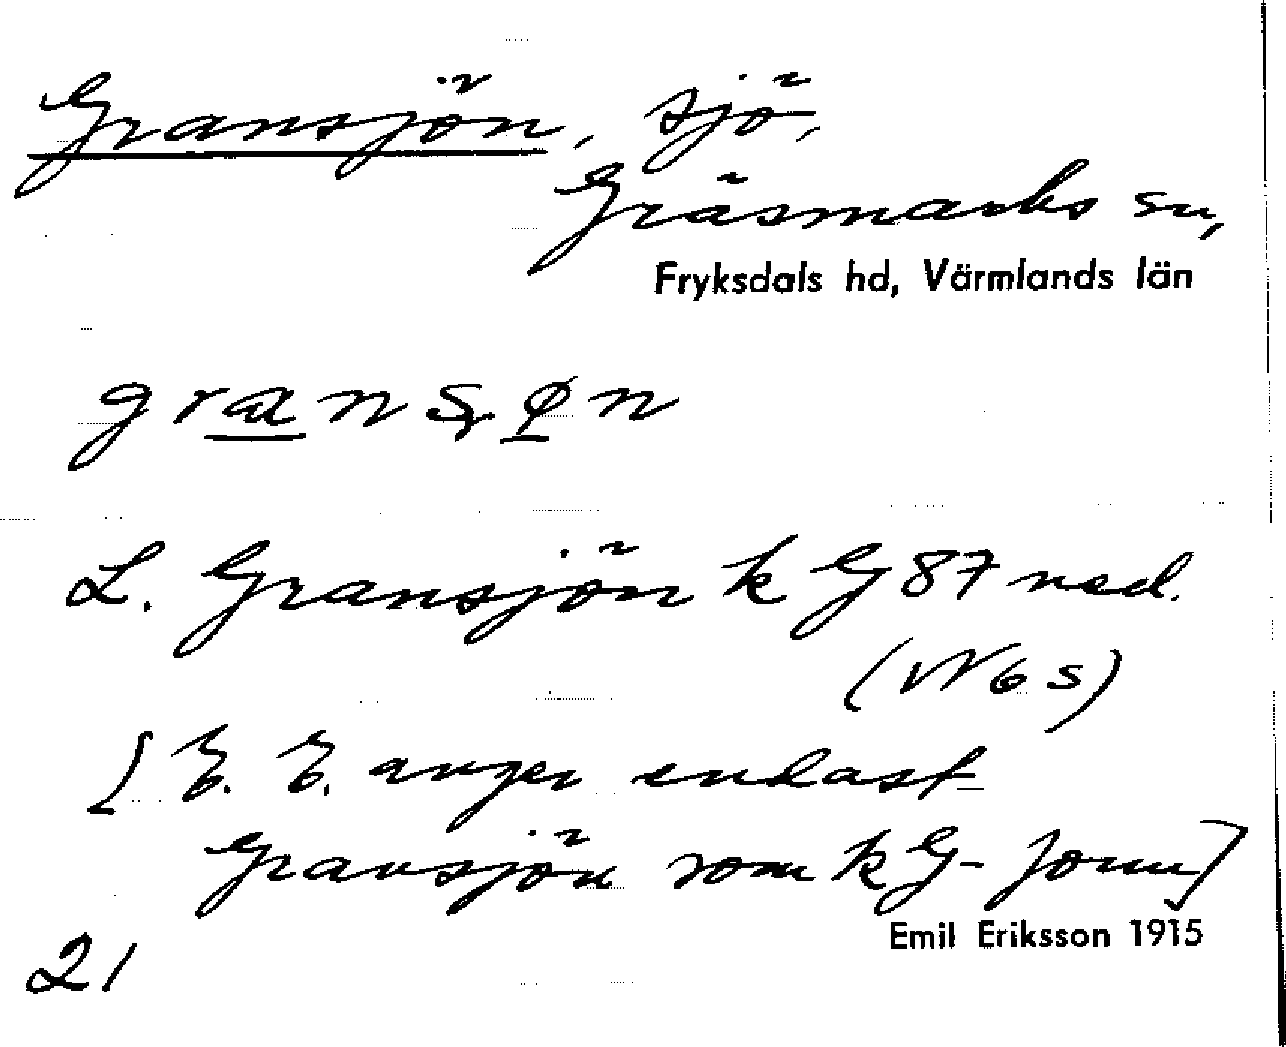 Gransjön, sjö,
Gräsmarks sn,
Fryksdals hd, Värmlands län
gransøn
L. Gransjön k G 87 ned.
(W 6 s)
[E. E. anger endast
Gransjön som k G-form]
Emil Eriksson 1915
21